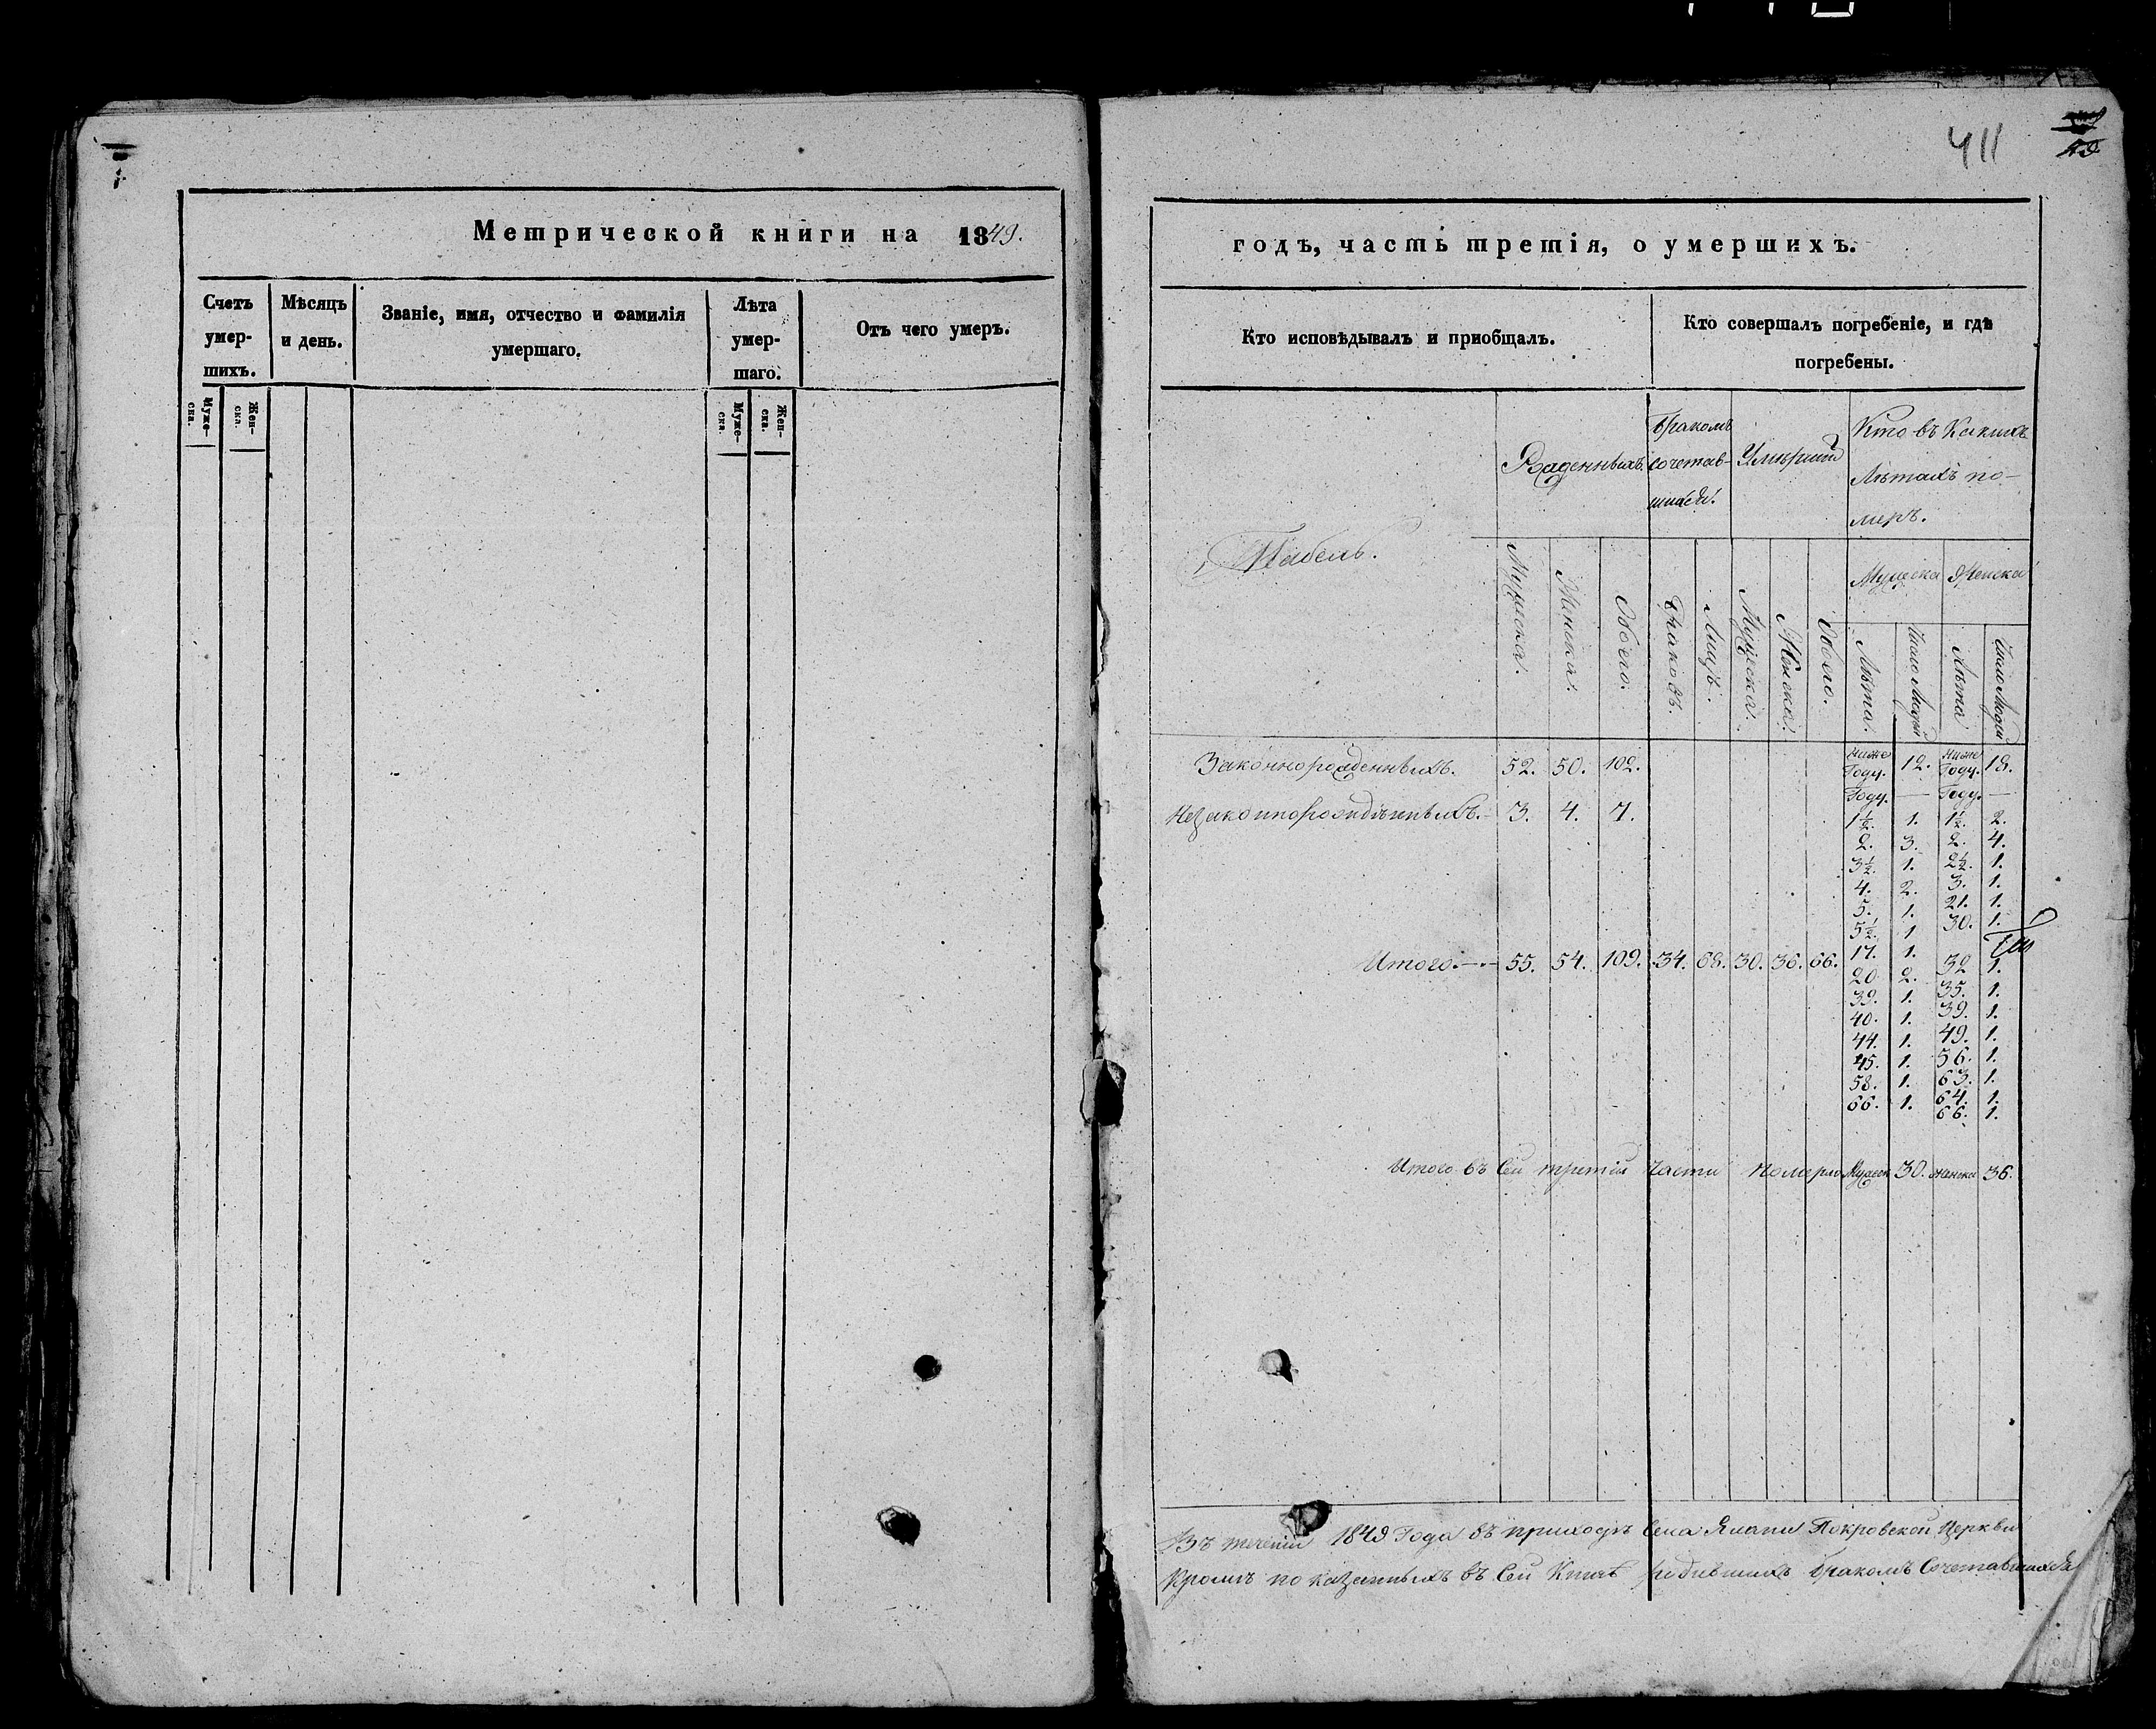 411
Метрической книги на 1849.
Счетъ умер-шихъ.
Мѣсяцъ и день.
Званіе, имя, отчество и фамилія умершаго.
Лѣта умер-шаго.
Отъ чего умеръ.
Муже-ска.
Жен-ска.
Муже-ска.
Жен-ска.
годъ, часть третія, о умершихъ.
Кто исповѣдывалъ и приобщалъ.
Кто совершалъ погребеніе, и гдѣ погребены.
Табель.
Рожденныхъ.
Бракомъ сочетав-шихся.
Умерший
Кто въ Какихъ Лѣтахъ по-меръ.
Мужеска Женска
Мужеска.
Женска.
Обоего.
Браковъ.
Лицъ.
Мужеска.
Женска.
Обоего.
Лѣта.
Число Людей
Лѣта
Число Людей
Законнорожденныхъ. 52. 50. 102. Ниже Году. 12. Ниже Году. 18.
Году. — Году. —
Незаконнорожденныхъ. 3. 4. 7.
1½. 1. 1½. 2.
2. 3. 2. 4.
3½. 1. 2½. 1.
4. 2. 3. 1.
5. 1. 21. 1.
5½. 1 30. 1.
Итого. 55. 54. 109. 34. 68. 30. 36. 66.
17. 1. 32 1.
20 2. 35. 1.
39. 1. 39. 1.
40. 1. 49. 1.
44. 1. 56. 1.
45. 1. 63. 1.
58. 1. 64. 1.
66. 1. 66. 1.
Итого въ Сей третій части померло Мужеск 30. женска 36.
Въ теченіи 1849 Года въ приходѣ Села Ялани Покровской Церкви
Кромѣ показанныхъ въ Сей Книгѣ родившихъ бракомъ Сочетавшихся